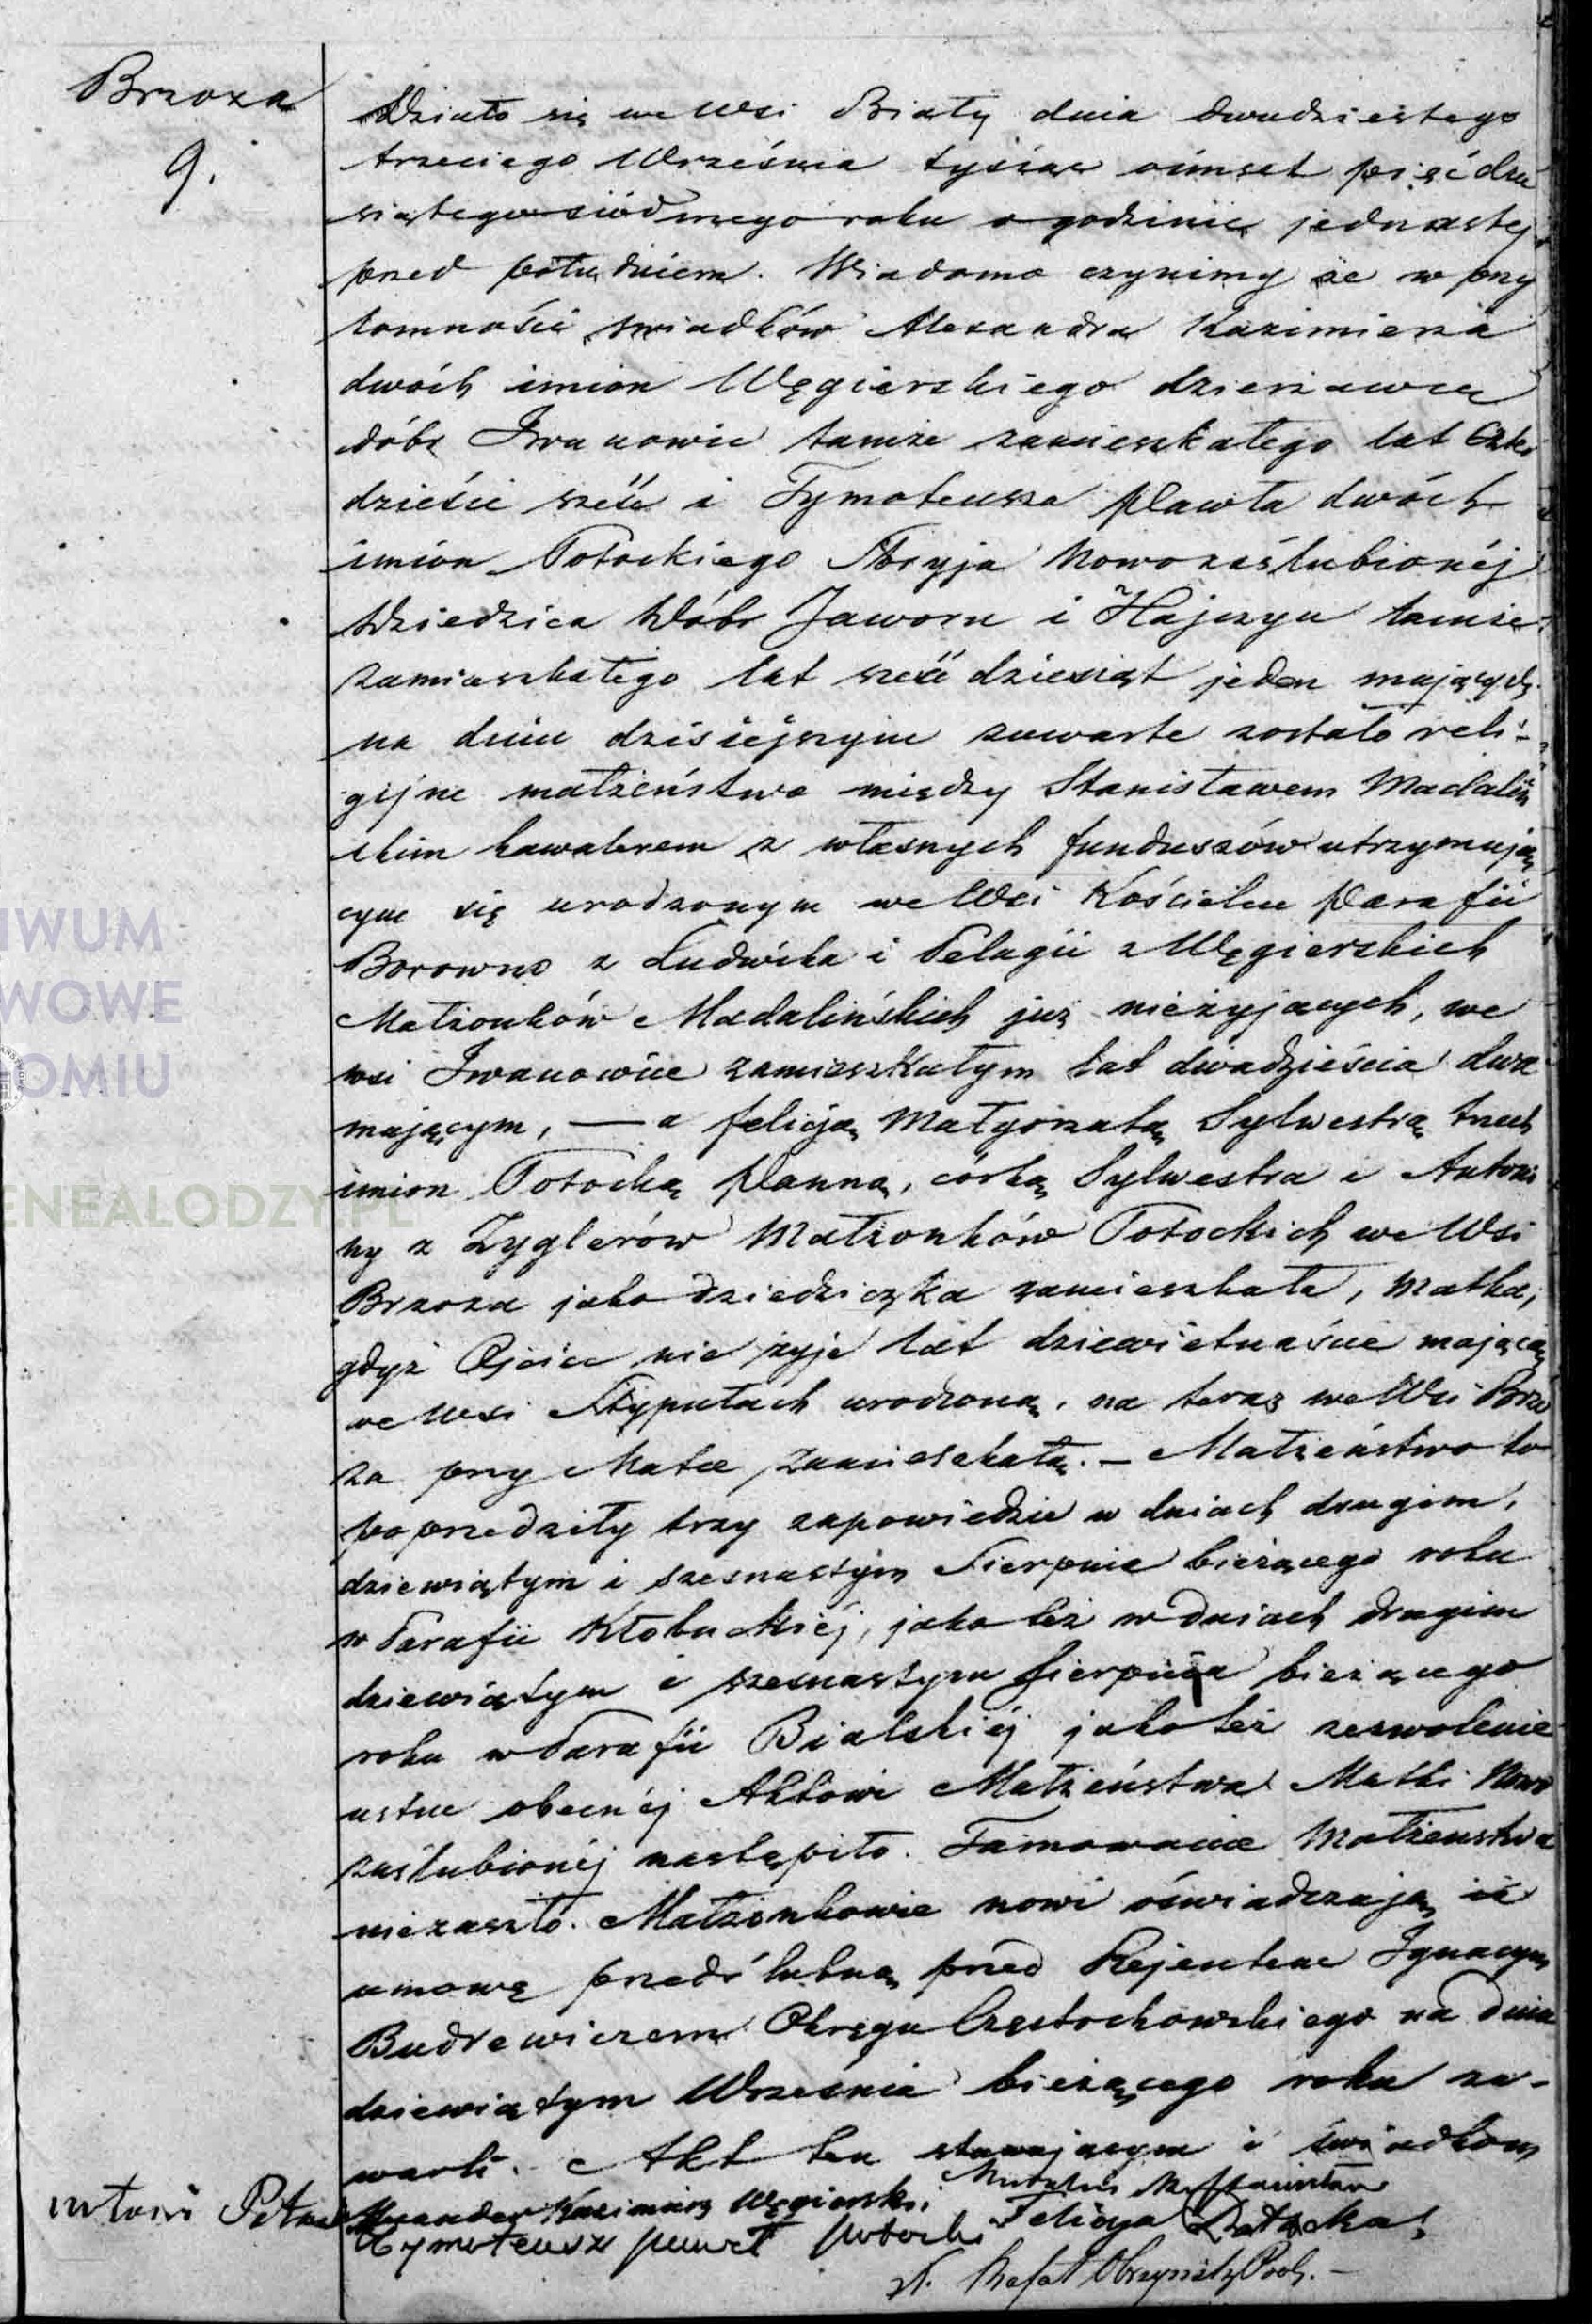 Brzoza
9.
Działo się we Wsi Biały dnia dwudziestego
trzeciego Września tysiąc ośmset pięćdzie
siątego siódmego roku o godzinie jednastej
przed południem. Wiadomo czynimy że w przy
tomności świadków Alexandra Kazimierza
dwóch imion Węgierskiego dzierżawca
dóbr Iwanowic tamże zamieszkałego lat Czter
dzieście sześć i Tymoteusza Pawła dwóch
imion Potockiego Stryja Nowozaślubionéj
Dziedzica Dóbr Jaworu i Hajczyu tamże
zamieszkałego lat sześćdziesiąt jeden mających
na dniu dzisiejszym zawarte zostało reli-
gijne małżeństwo między Stanisławem Madaliń
skim kawalerem z własnych funduszów utrzymują
cym się urodzonym we Wsi Kościelcu Parafii
Borowno z Ludwika i Pelagii z Węgierskich
Małżonków Madalińskich już nieżyjących, we
wsi Iwanowice zamieszkałym lat dwadzieścia dwa
mającym, — a Felicją Małgorzatą Sylwestrą trzech
imion Potocką Panną, córką Sylwestra i Antoni
ny z Zyglerów Małżonków Potockich we Wsi
Brzoza jako dziedziczka zamieszkała, Matka,
gdyż Ojciec nie żyje lat dziewietnaście mającą
we Wsi Stypułach urodzoną, na teraz we Wsi Brzo
za przy Matce zamieszkałą. — Małżeństwo to
poprzedziły trzy zapowiedzie w dniach drugim,
dziewiątym i szesnastym Sierpnia bieżącego roku
w Parafii Kłobuckiéj, jako też w dniach drugim
dziewiątym i szesnastym Sierpnia bieżącego
roku w Parafii Bialskiéj jako też zezwolenie
ustne obecnéj Aktowi Małżeństwa Matki Nowo
zaślubionéj nastąpiło. Tamowanie Małżeństwa
niezaszło. Małżonkowie nowi oświadczają iż
umowę przedślubną przed Rejentem Ignacym
Budrewiczem Okręgu Częstochowskiego na dniu
dziewiątym Września bieżącego roku za-
warli. Akt ten stawającym i świadkom
Alexander Kazimierz Węgierski
Felicya Potocka
Tymoteusz Paweł Potocki
X. Rafał Prob. —
IWUM
WOWE
OMIU
ENEALODZY.PL